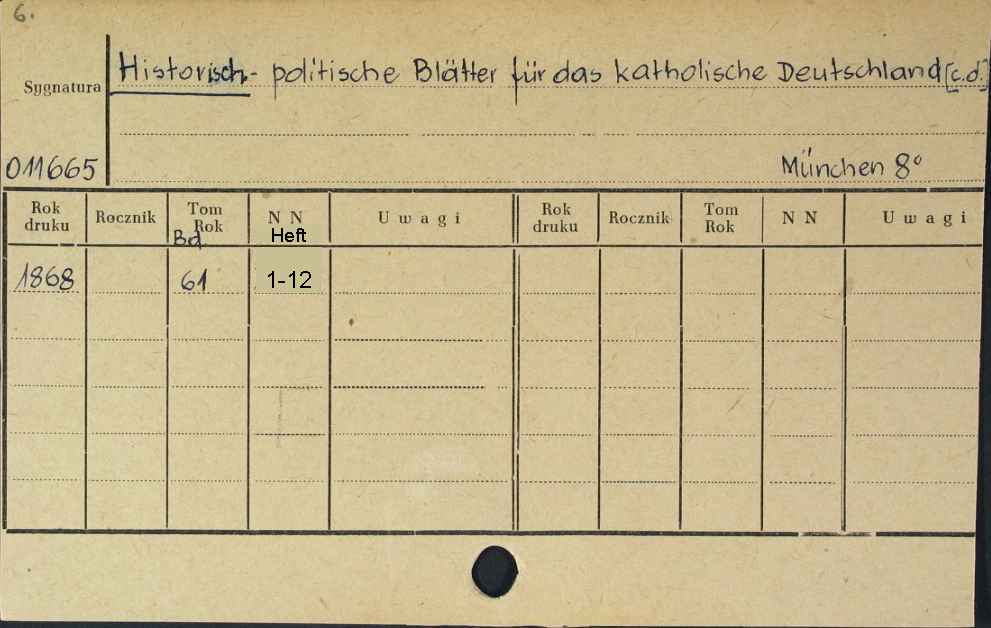 6.
Sygnatura
Historisch- politische Blätter für das katholische Deutschland [c.d.]
011665
München 8°
Rok druku Rocznik Tom Rok N N Uwagi Rok druku Rocznik Tom Rok N N Uwagi
Bd. Heft
1868 61 1-12